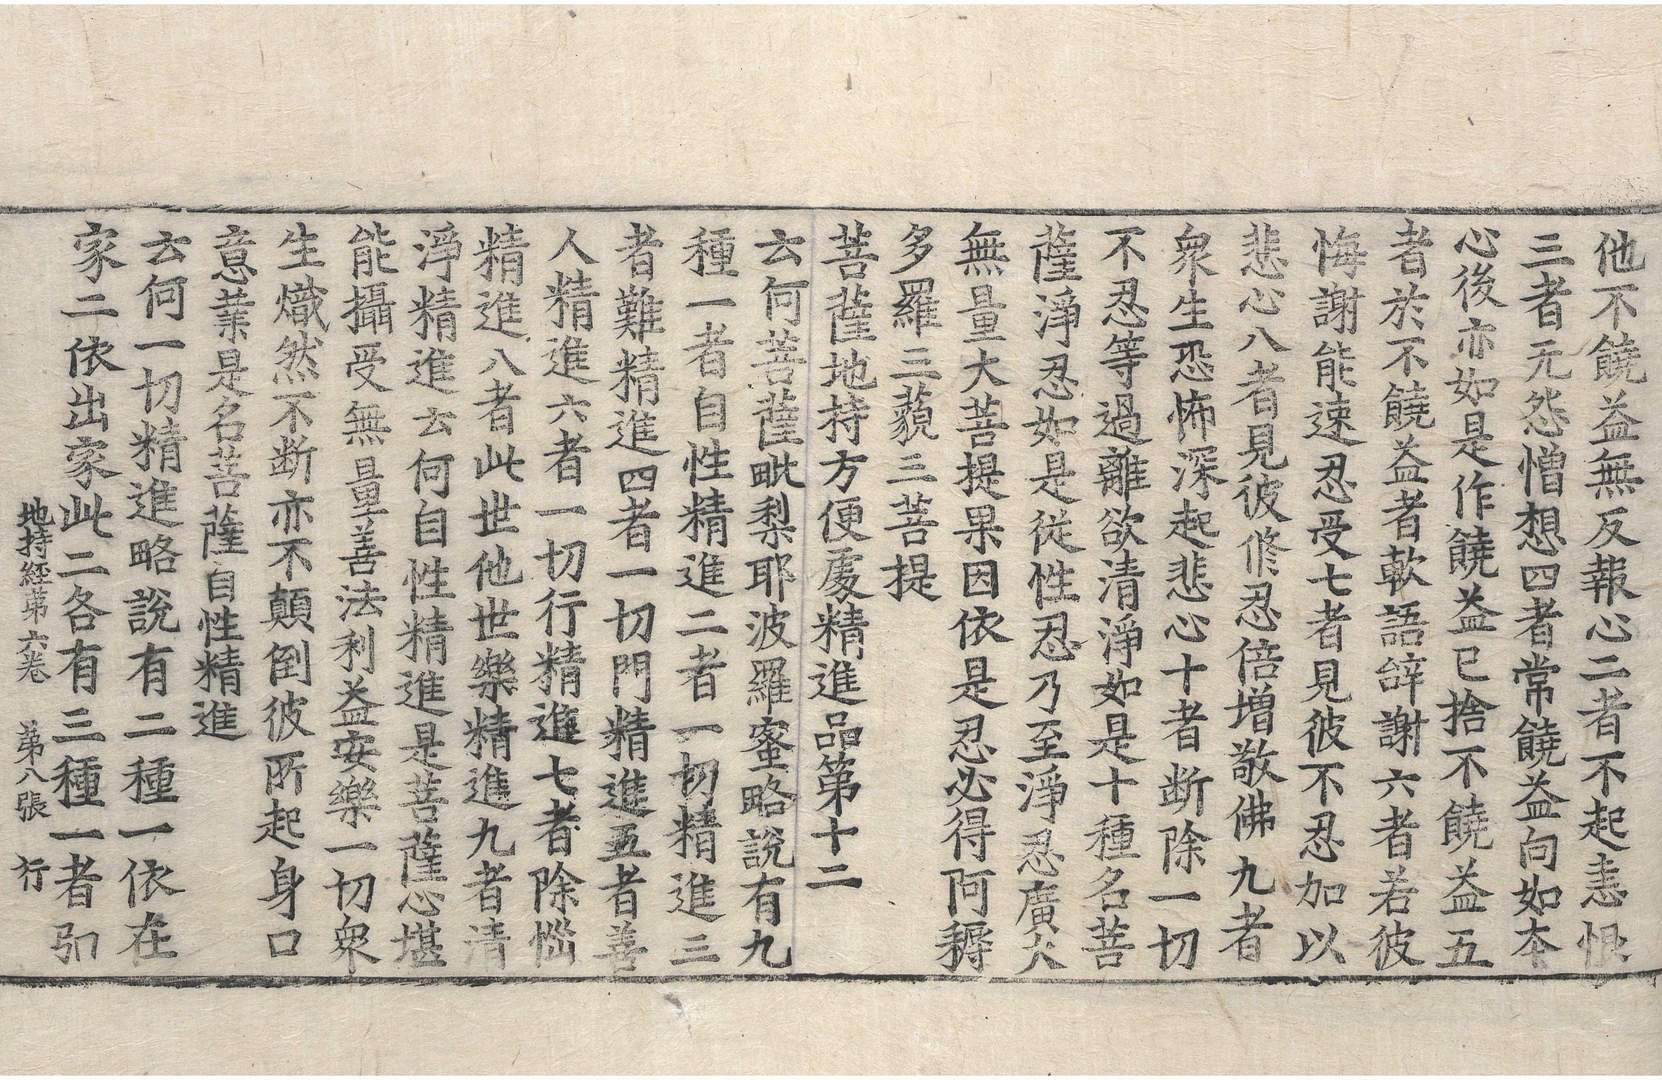 他不饒益無反報心二者不起恚恨
三者无怨憎想四者常饒益向如本
心後亦如是作饒益已捨不饒益五
者於不饒益者軟語辤謝六者若彼
悔謝能速忍受七者見彼不忍加以
悲心八者見彼修忍倍增敬佛九者
衆生恐怖深起悲心十者断除一切
不忍等過離欲清淨如是十種名菩
薩淨忍如是從性忍乃至淨忍廣大
無量大菩提果因依是忍必得阿耨
多羅三藐三菩提
菩薩地持方便處精進品第十二
云何菩薩毗梨耶波羅蜜略說有九
種一者自性精進二者一切精進三
者難精進四者一切門精進五者善
人精進六者一切行精進七者除惱
精進八者此世他世樂精進九者清
淨精進云何自性精進是菩薩心堪
能攝受無量善法利益安樂一切衆
生熾然不断亦不顛倒彼所起身口
意業是名菩薩自性精進
云何一切精進略說有二種一依在
家二依出家此二各有三種一者引
地持經苐六卷 苐八張 行